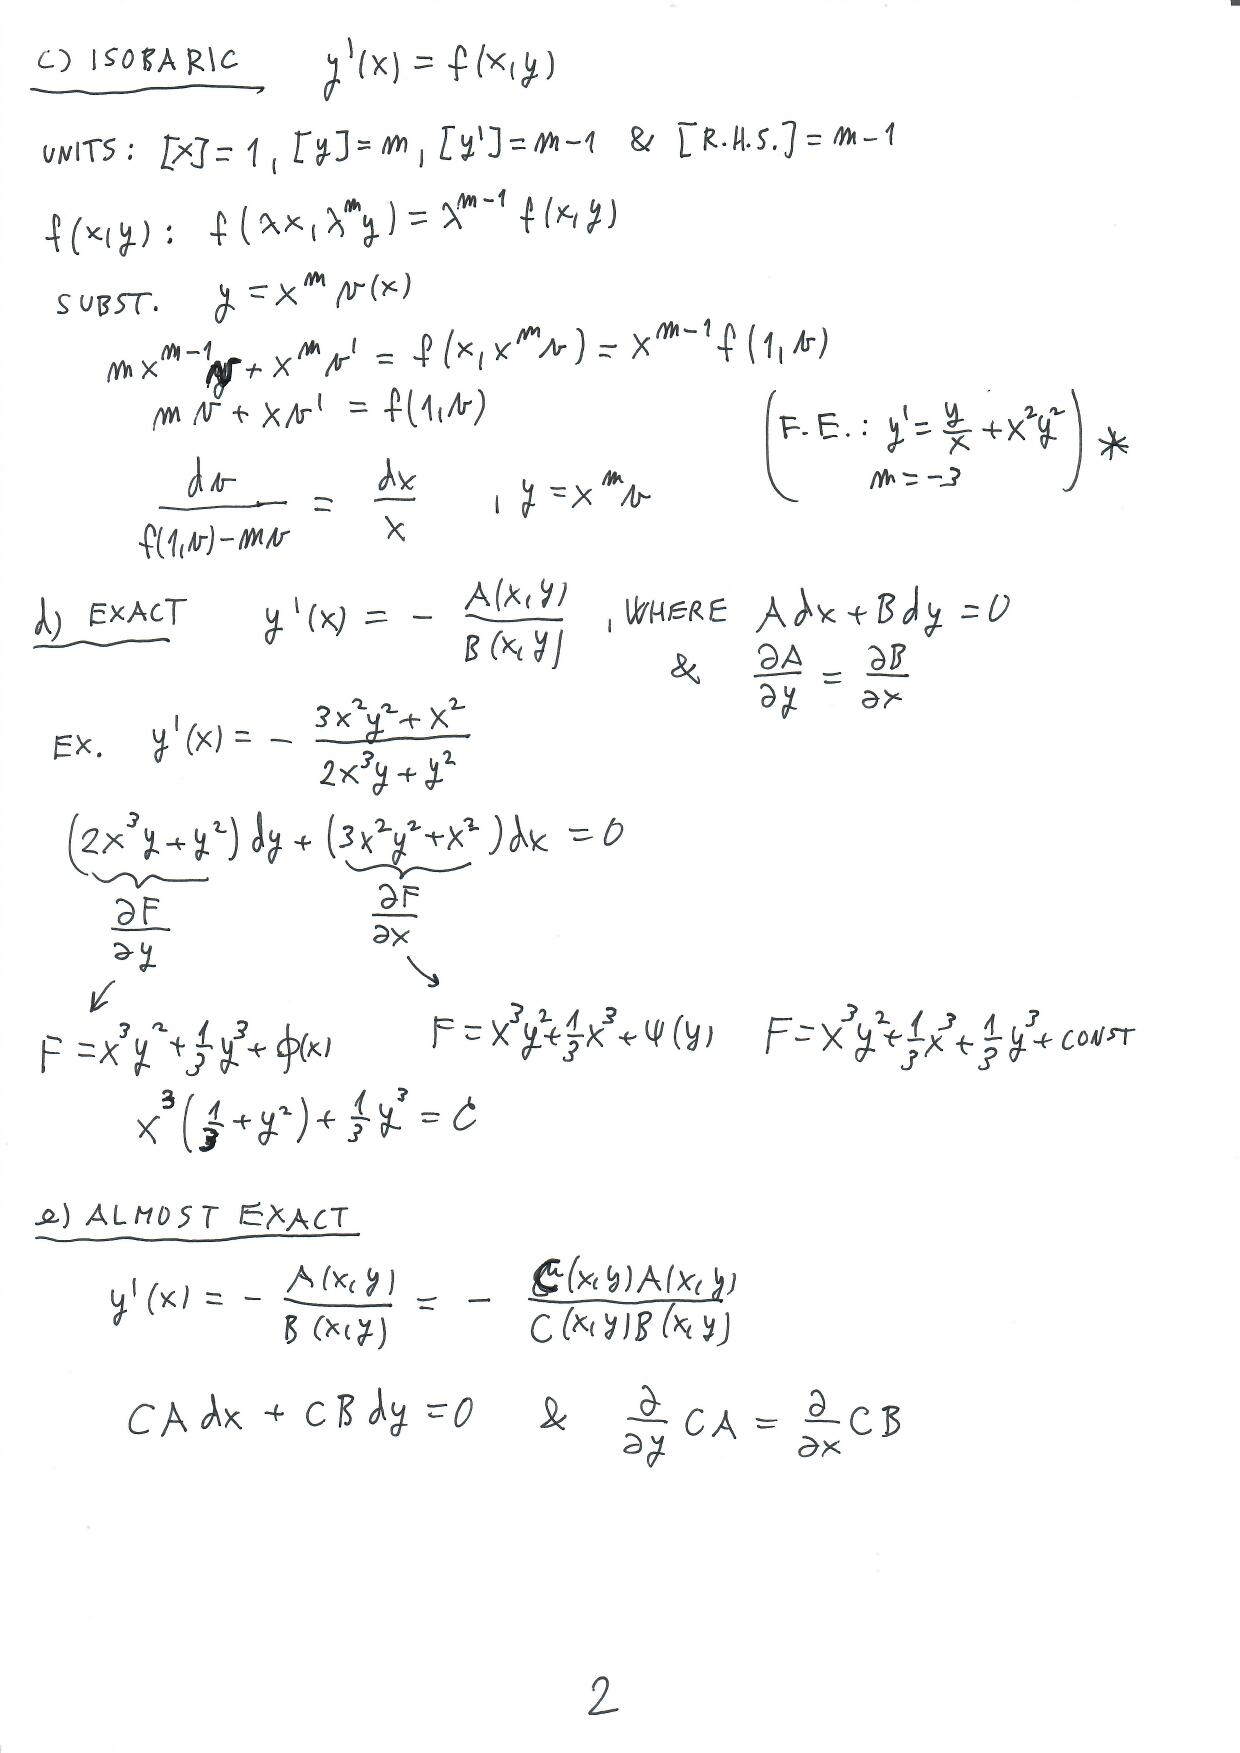 c) ISOBARIC y'(x) = f(x,y)
UNITS: [x]=1, [y]=m, [y']=m-1 & [R.H.S.]=m-1
f(x,y): f(λx, λ^m y) = λ^{m-1} f(x,y)
SUBST. y = x^m v(x)
m x^{m-1} v + x^m v' = f(x, x^m v) = x^{m-1} f(1,v)
m v + x v' = f(1,v)
(F.E.: y' = y/x + x²y²) *
m = -3
dv/(f(1,v)-mv) = dx/x , y = x^m v
d) EXACT y'(x) = - A(x,y)/B(x,y) , WHERE A dx + B dy = 0
& ∂A/∂y = ∂B/∂x
EX. y'(x) = - (3x²y² + x²)/(2x³y + y²)
(2x³y + y²) dy + (3x²y² + x²) dx = 0
∂F/∂y ∂F/∂x
↙ ↘
F = x³y² + 1/3 y³ + ϕ(x) F = x³y² + 1/3 x³ + ψ(y) F = x³y² + 1/3 x³ + 1/3 y³ + CONST
x³(1/3 + y²) + 1/3 y³ = C
e) ALMOST EXACT
y'(x) = - A(x,y)/B(x,y) = - C(x,y)A(x,y)/C(x,y)B(x,y)
CA dx + CB dy = 0 & ∂/∂y CA = ∂/∂x CB
2